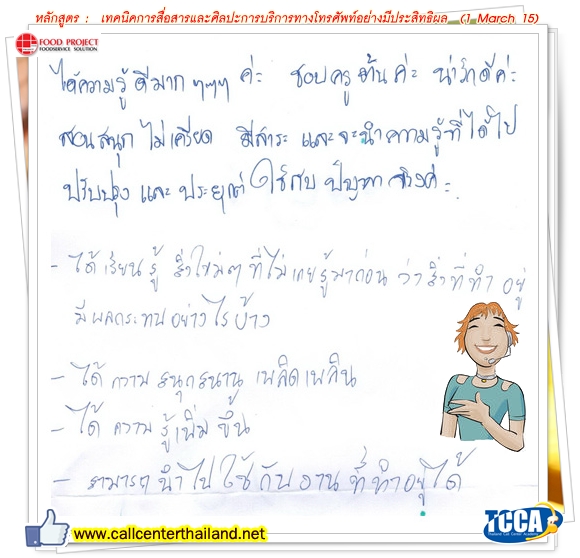 หลักสูตร : เทคนิคการสื่อสารและศิลปะการบริการทางโทรศัพท์อย่างมีประสิทธิผล (1 March 15)
FOOD PROJECT
FOODSERVICE SOLUTION
ได้ความรู้ดีมาก ๆๆๆ ค่ะ ชอบครูต้นค่ะ น่ารักดีค่ะ
สอนสนุก ไม่เครียด มีสาระ และจะนำความรู้ที่ได้ไป
ปรับปรุง และ ประยุกต์ ใช้กับ ปัญหา จริงค่ะ
- ได้เรียนรู้ สิ่งใหม่ๆ ที่ไม่เคยรู้มาก่อน ว่าสิ่งที่ทำ อยู่
มีผลกระทบอย่างไรบ้าง
- ได้ ความ สนุกสนาน เพลิดเพลิน
- ได้ ความ รู้เพิ่ม ขึ้น
- สามารถ นำไปใช้กับ งาน ที่ทำอยู่ได้
www.callcenterthailand.net
TCCA